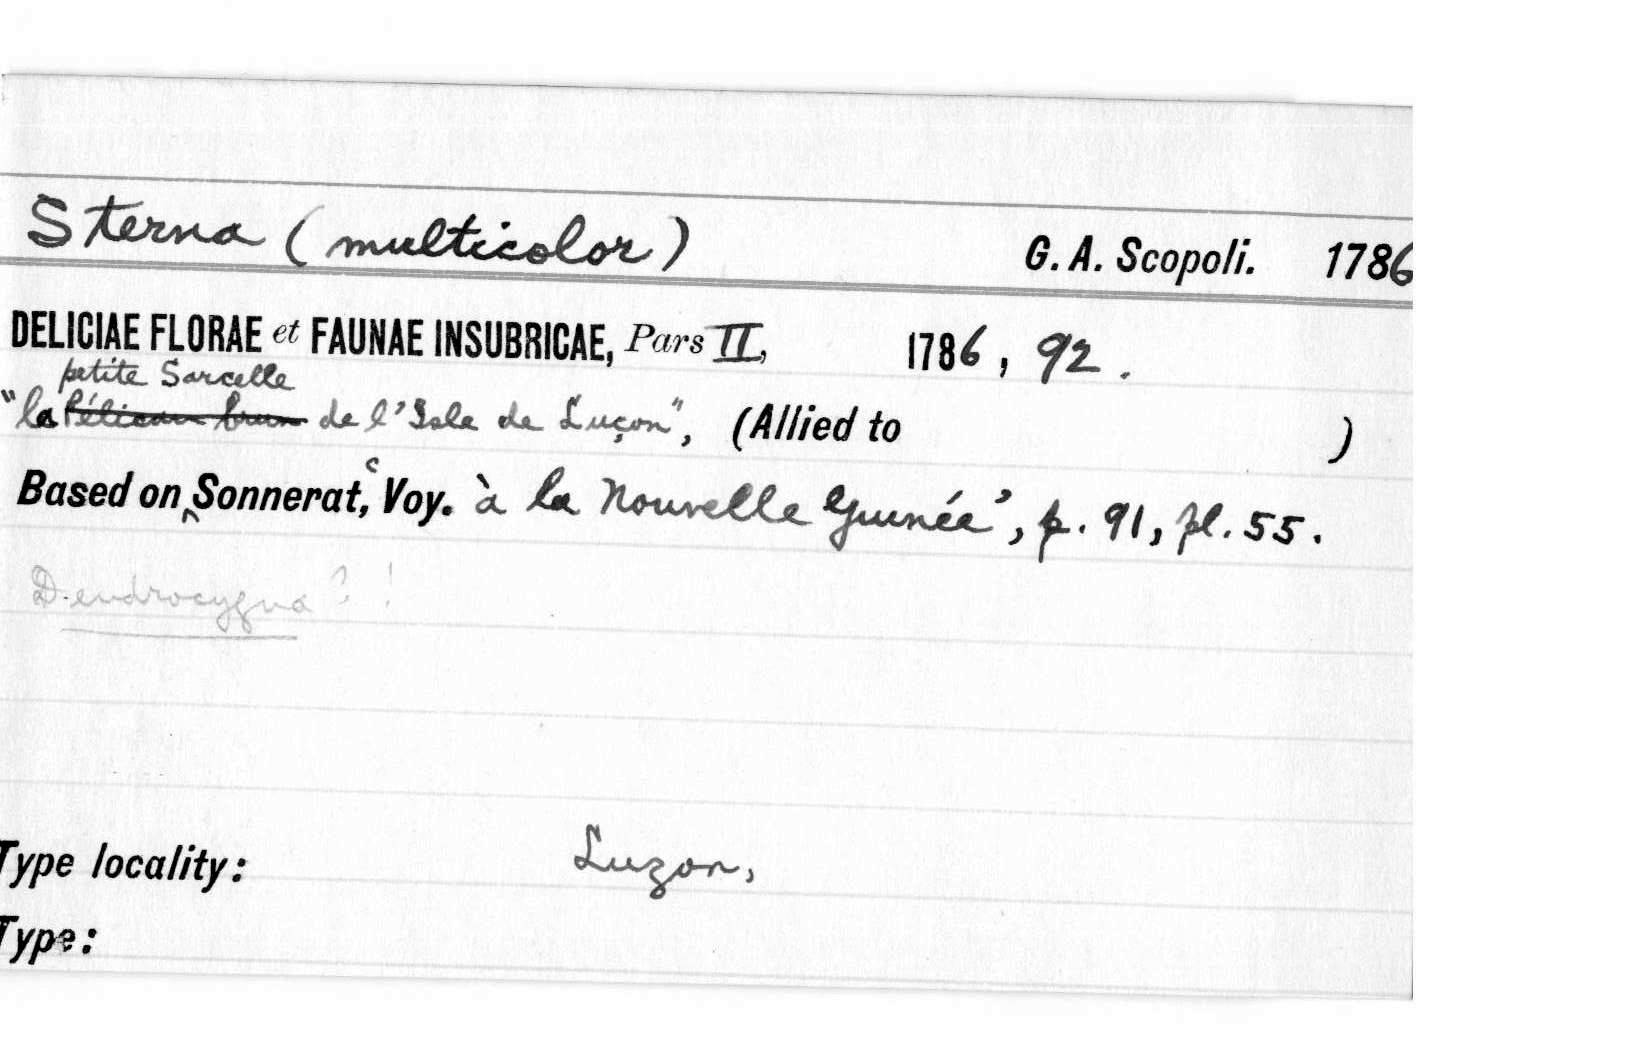 Sterna (multicolor) G. A. Scopoli. 1786
DELICIAE FLORAE et FAUNAE INSUBRICAE, Pars II, 1786, 92.
petite Sarcelle
"la Pélican brun de l'Isle de Luçon", (Allied to )
Based on Sonnerat, 'Voy. à la Nouvelle Guinée', p. 91, pl. 55.
Dendrocygna ? !
Type locality: Luzon,
Type: